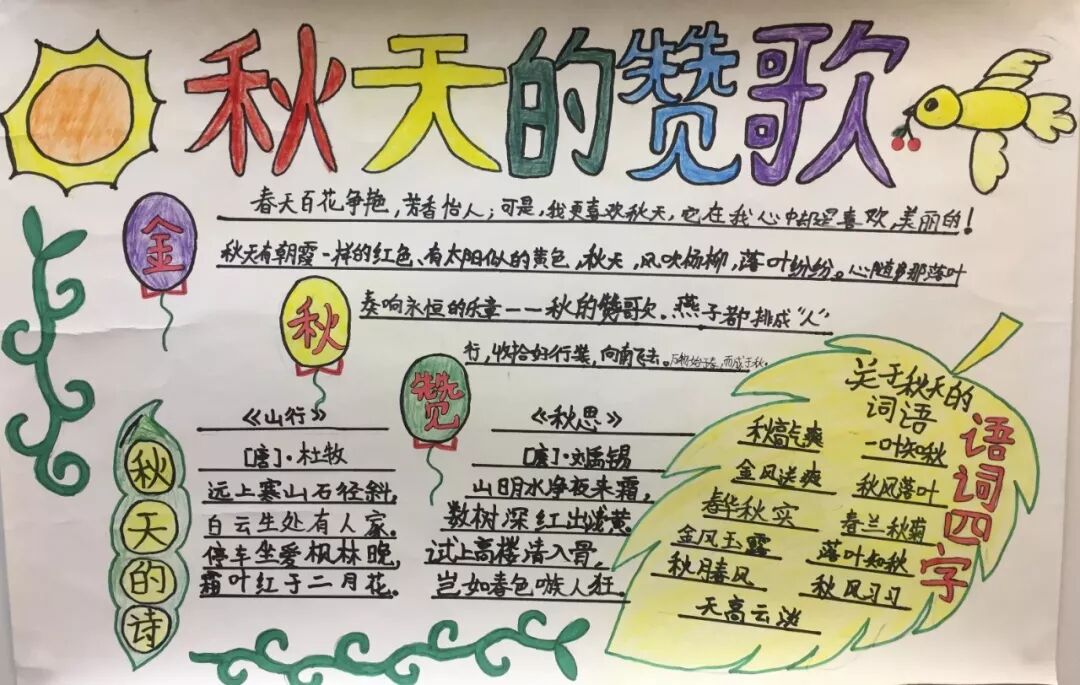 秋天的赞歌
春天百花争艳，芳香怡人；可是，我更喜欢秋天，它在我心中却是喜欢，美丽的！
秋天有朝霞一样的红色、有太阳似的黄色，秋天，风吹杨柳，落叶纷纷。心随那落叶
奏响永恒的乐章——秋的赞歌。燕子都排成“人”
行，收拾好行装，向南飞去。万物始于春，而成于秋。
金
秋
赞
秋天的诗
《山行》
[唐]·杜牧
远上寒山石径斜，
白云生处有人家。
停车坐爱枫林晚，
霜叶红于二月花。
《秋思》
[唐]·刘禹锡
山明水净夜来霜，
数树深红出浅黄。
试上高楼清入骨，
岂如春色嗾人狂。
关于秋天的
词语
语词四字
秋高气爽
一叶知秋
金风送爽
秋风落叶
春华秋实
春兰秋菊
金风玉露
落叶知秋
秋月春风
秋风习习
天高云淡